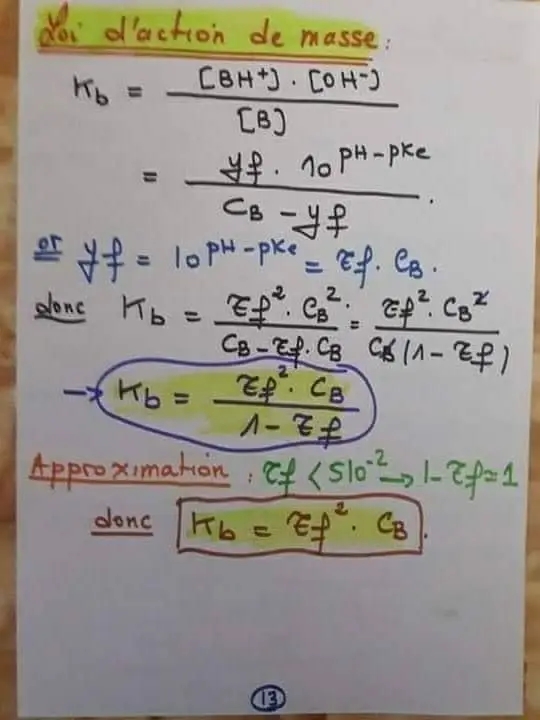 Loi d'action de masse :
Kb = [BH+] . [OH-] / [B]
= yf . 10^pH-pKe / CB - yf .
or yf = 10^pH-pKe = τf . CB .
donc Kb = τf² . CB² / CB - τf . CB = τf² . CB² / CB (1 - τf)
→ Kb = τf² . CB / 1 - τf
Approximation : τf < 510^-2 → 1 - τf = 1
donc Kb = τf² . CB .
13